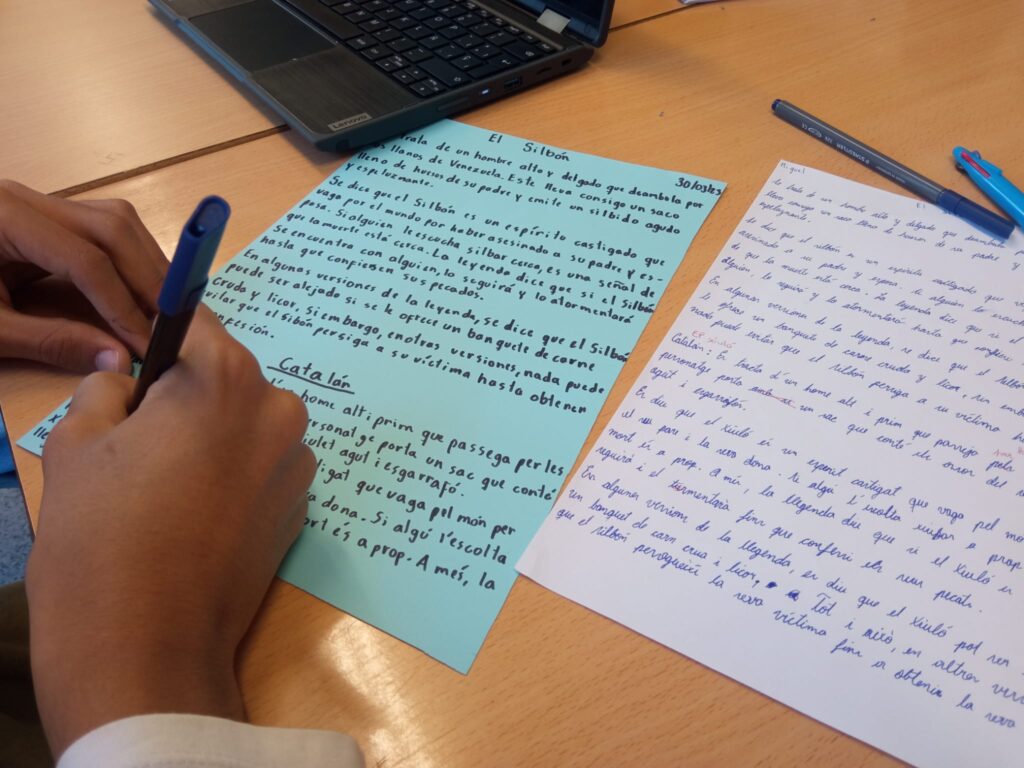 Lenovo
El Silbón
30/03/23
trata de un hombre alto y delgado que deambola por
los llanos de Venezuela. Este lleva consigo un saco
lleno de huesos de su padre y emite un silbido agudo
y espeluzmante.
Se dice que el Silbón es un espíritu castigado que
vaga por el mundo por haber asesinado a su padre y es-
posa. Si alguien le escucha silbar cerca, es una señal de
que la muerte está cerca. La leyenda dice que si el Silbón
se encuentra con alguien, lo seguirá y lo atormentará
hasta que confiesen sus pecados.
En algunas versiones de la leyenda, se dice que el Silbón
puede ser alejado si se le ofrece un banquete de carne
crudo y licor, si embargo, en otras versiones, nada puede
evitar que el sibón persiga a su víctima hasta obtener
confesión.
Catalán
home alt i prim que passega per les
personatge porta un sac que conté
xiulet agut i esgarrafó.
castigat que vaga pel món per
dona. Si algú l'escolta
mort és a prop. A més, la
Miguel
El
Se trata de un hombre alto y delgado que deambola
lleva consigo un saco lleno de huesos de su padre y
espeluznante.
Se dice que el silbón es un espíritu castigado que
asesinado a su padre y esposa. Si alguien le escucha
de que la muerte está cerca. La leyenda dice que si el
alguien, lo seguirá y lo atormentará hasta que confiese
En algunas versiones de la leyenda, se dice que el Silbón
le ofrece un banquete de carne cruda y licor, sin embargo
nada puede evitar que el silbón persiga a su víctima
El xiuló
Catalán: Es tracta d'un home alt i prim que passeja pels
personatge porta un sac que conté els ossos del seu
agut i esgarrafós.
Es diu que el xiuló és un esperit castigat que vaga pel món
el seu pare i la seva dona. Si algú l'escolta xiular a prop
mort és a prop. A més, la llegenda diu que si el xiuló es
seguirà i el turmentarà fins que confessi els seus pecats.
En algunes versions de la llegenda, es diu que el xiuló pot ser
un banquet de carn crua i licor, Tot i això, en altres
que el silbón persegueixi la seva víctima fins a obtenir la seva